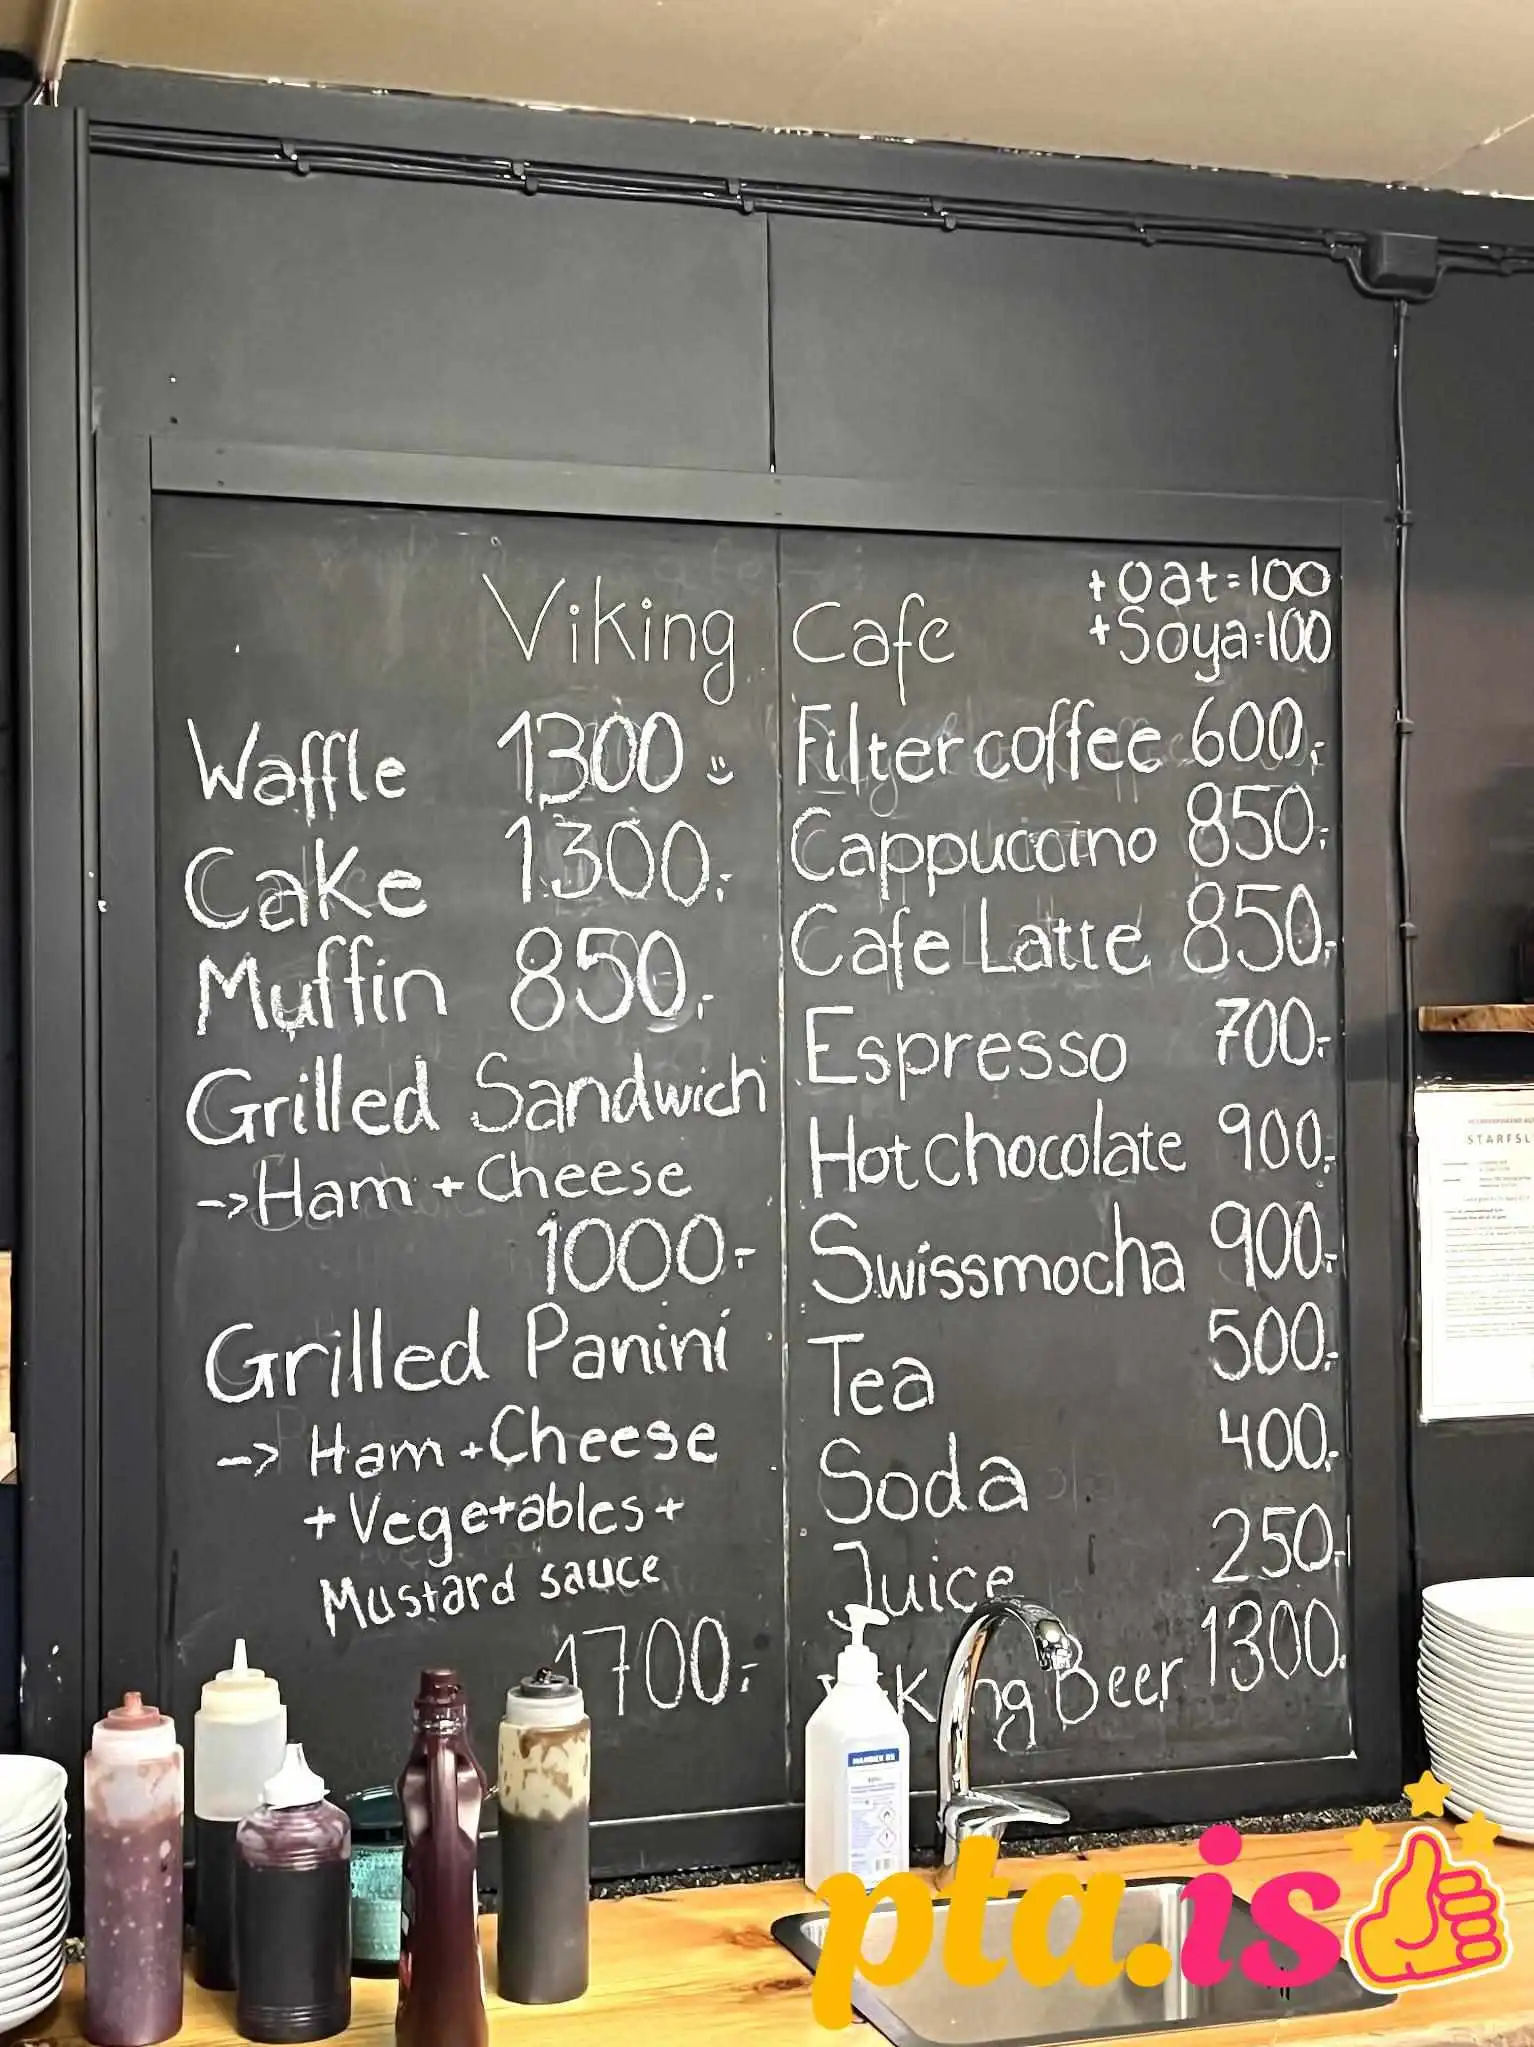 Viking Cafe
+Oat=100
+Soya=100
Waffle 1300
Cake 1300,-
Muffin 850,-
Grilled Sandwich
-> Ham + Cheese
1000,-
Grilled Panini
-> Ham + Cheese
+ Vegetables +
Mustard sauce
1700,-
Filter coffee 600,-
Cappuccino 850,-
Cafe Latte 850,-
Espresso 700,-
Hot chocolate 900,-
Swissmocha 900,-
Tea 500,-
Soda 400,-
Juice 250,-
Beer 1300,
STARFSL
pta.is